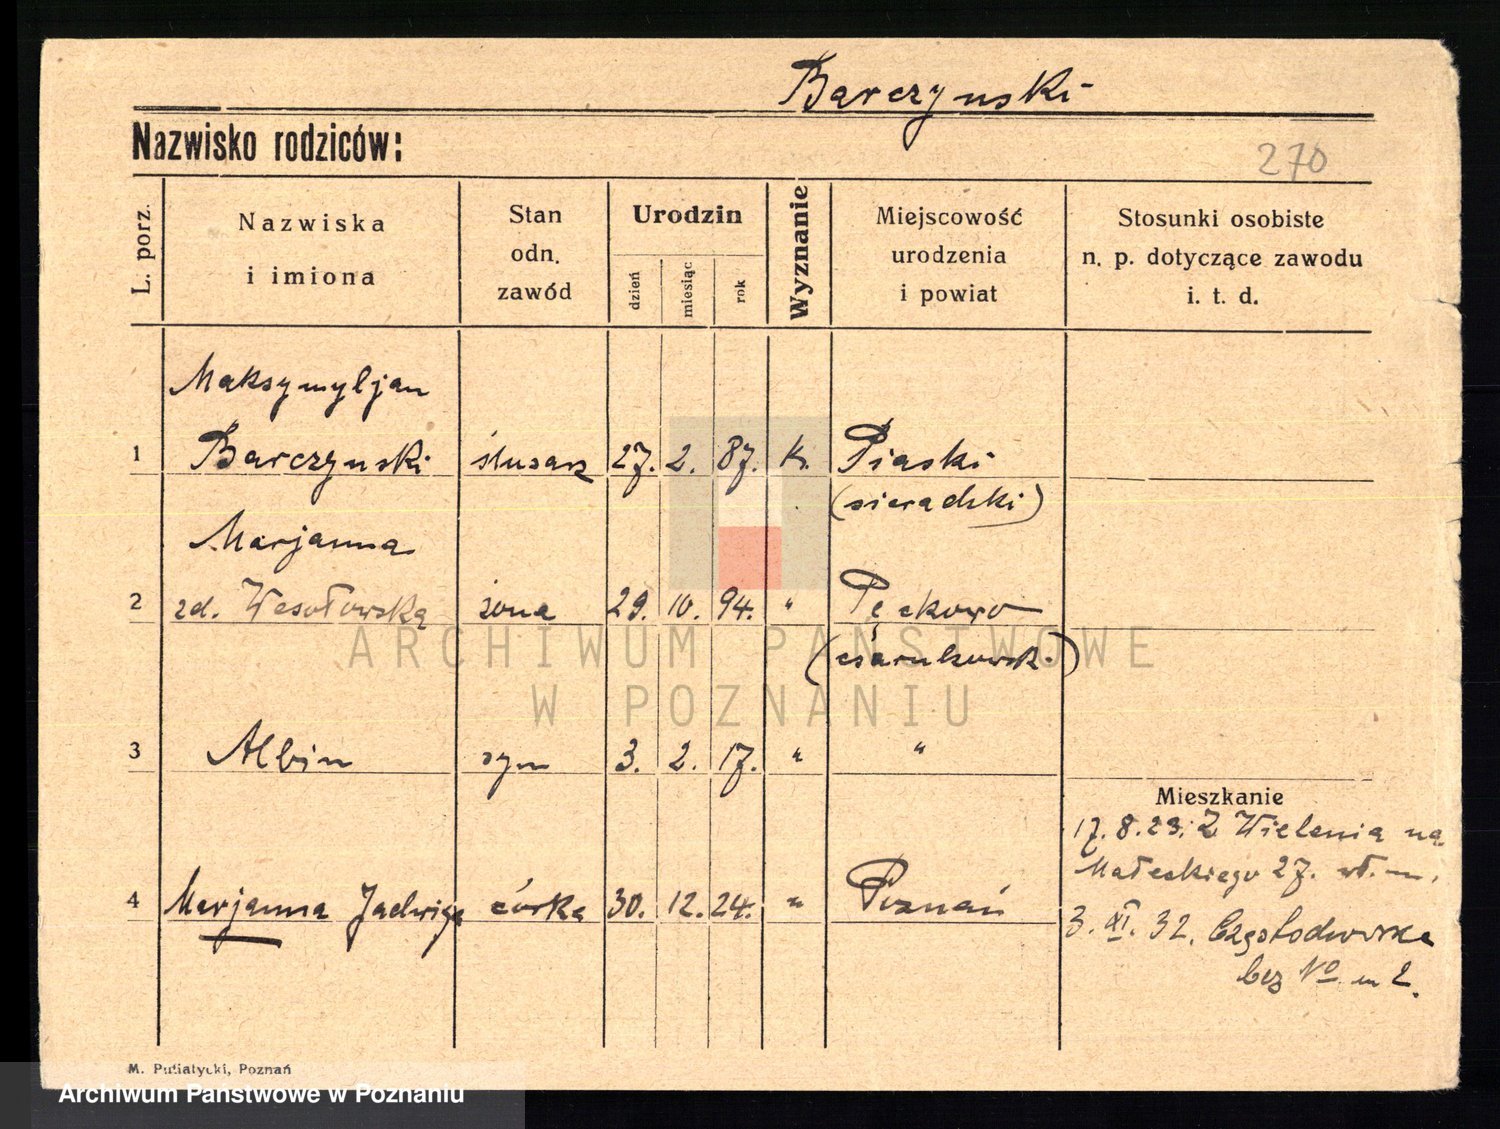 Barczynski
Nazwisko rodziców:
270
L. porz.
Nazwiska
i imiona
Stan
odn.
zawód
Urodzin
dzień
miesiąc
rok
Wyznanie
Miejscowość
urodzenia
i powiat
Stosunki osobiste
n. p. dotyczące zawodu
i. t. d.
Maksymyljan
1 Barczynski ślusarz 27. 2. 87. k. Piaski
(sieradzki)
Marjanna
2 zd. Wesołowska żona 29. 10. 94. " Pęckowo
(czarnkowsk.)
3 Albin syn 3. 2. 17. " "
Mieszkanie
17. 8. 23. Z Wielenia na
Małeckiego 27. wł. m.
4 Marjanna Jadwiga córka 30. 12. 24. " Poznań
3. XI. 32. Częstochowska
bez No m 2.
M. Putiatycki, Poznań
ARCHIWUM PAŃSTWOWE
W POZNANIU
Archiwum Państwowe w Poznaniu